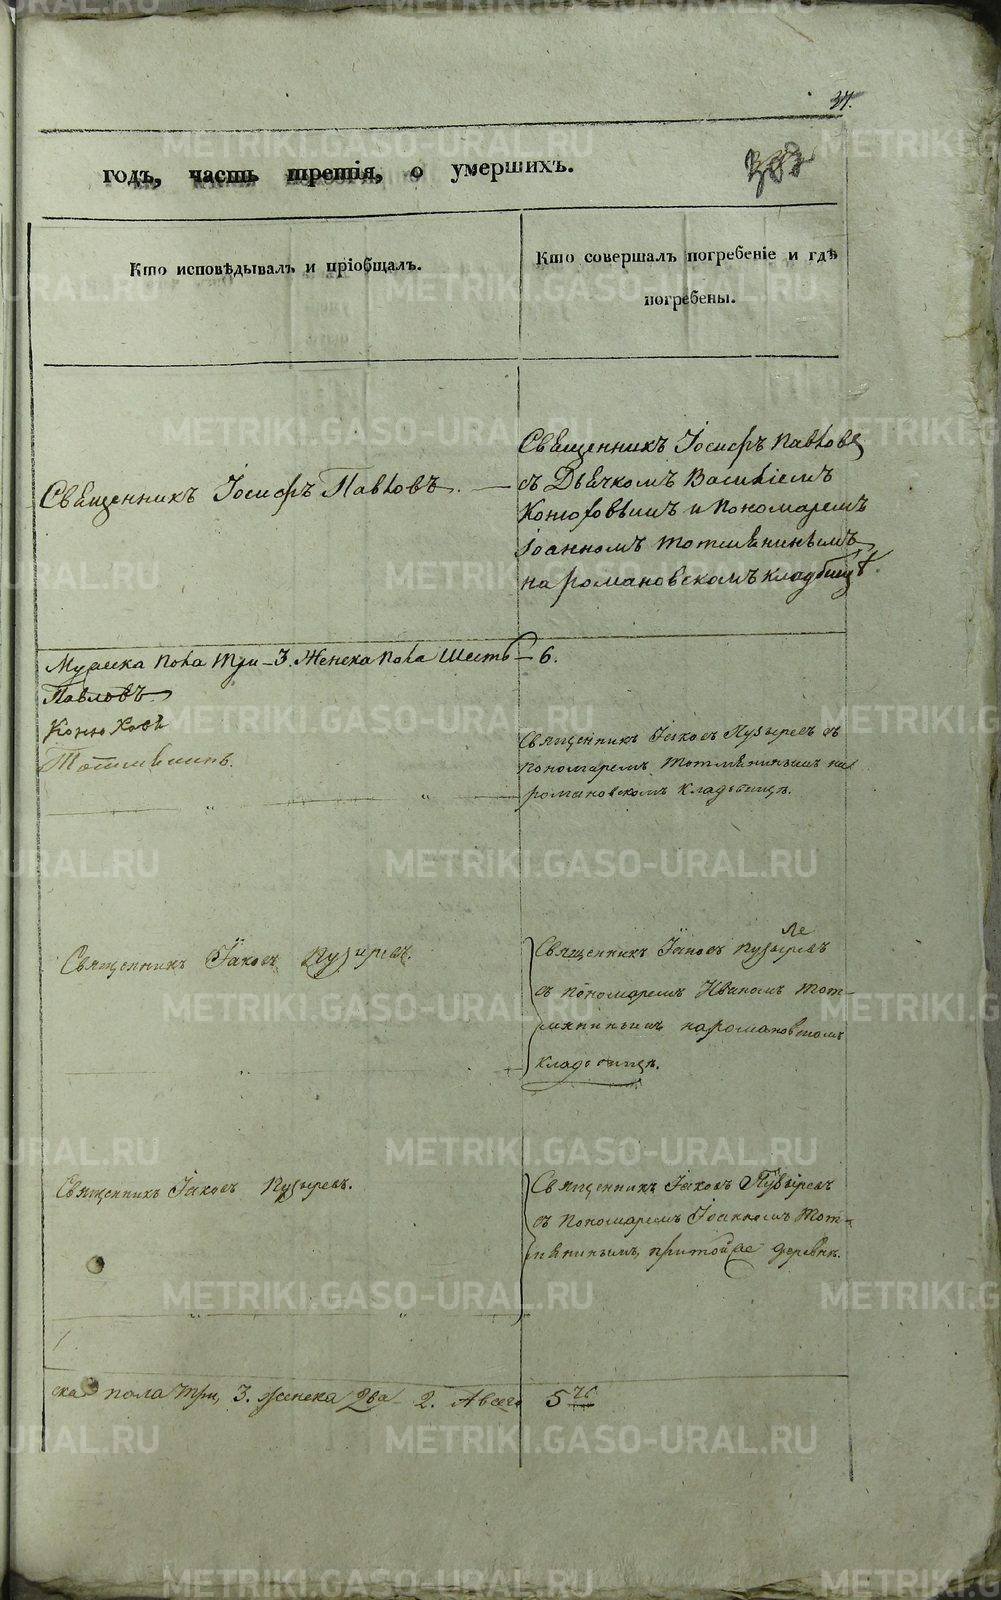 37.
годъ, часть третія, о умершихъ.
Кто исповѣдывалъ и пріобщалъ.
Кто совершалъ погребеніе и гдѣ
погребены.
Священникъ Іосифъ Павловъ.
Священникъ Іосифъ Павловъ
съ Дьячкомъ Василіемъ
Конюховымъ и Пономаремъ
Іоанномъ Тотмѣнинымъ
на романовскомъ кладбищѣ.
Мужеска пола три – 3. Женска пола Шесть – 6.
Павловъ
Конюховъ
Тотмѣнинъ.
Священникъ Іаковъ Пузыревъ съ
пономаремъ Тотмѣнинымъ на
романовскомъ кладбищѣ.
Священникъ Іаковъ Пузыревъ.
Священникъ Іаковъ Пузыревъ
съ пономаремъ Иваномъ Тот-
мѣнинымъ на романовскомъ
кладбищѣ.
Священникъ Іаковъ Пузыревъ.
Священникъ Іаковъ Пузыревъ
съ пономаремъ Іоанномъ Тот-
мѣнинымъ, при той же деревнѣ.
ска пола три, 3. женска два 2. А всего 5
METRIKI.GASO-URAL.RU